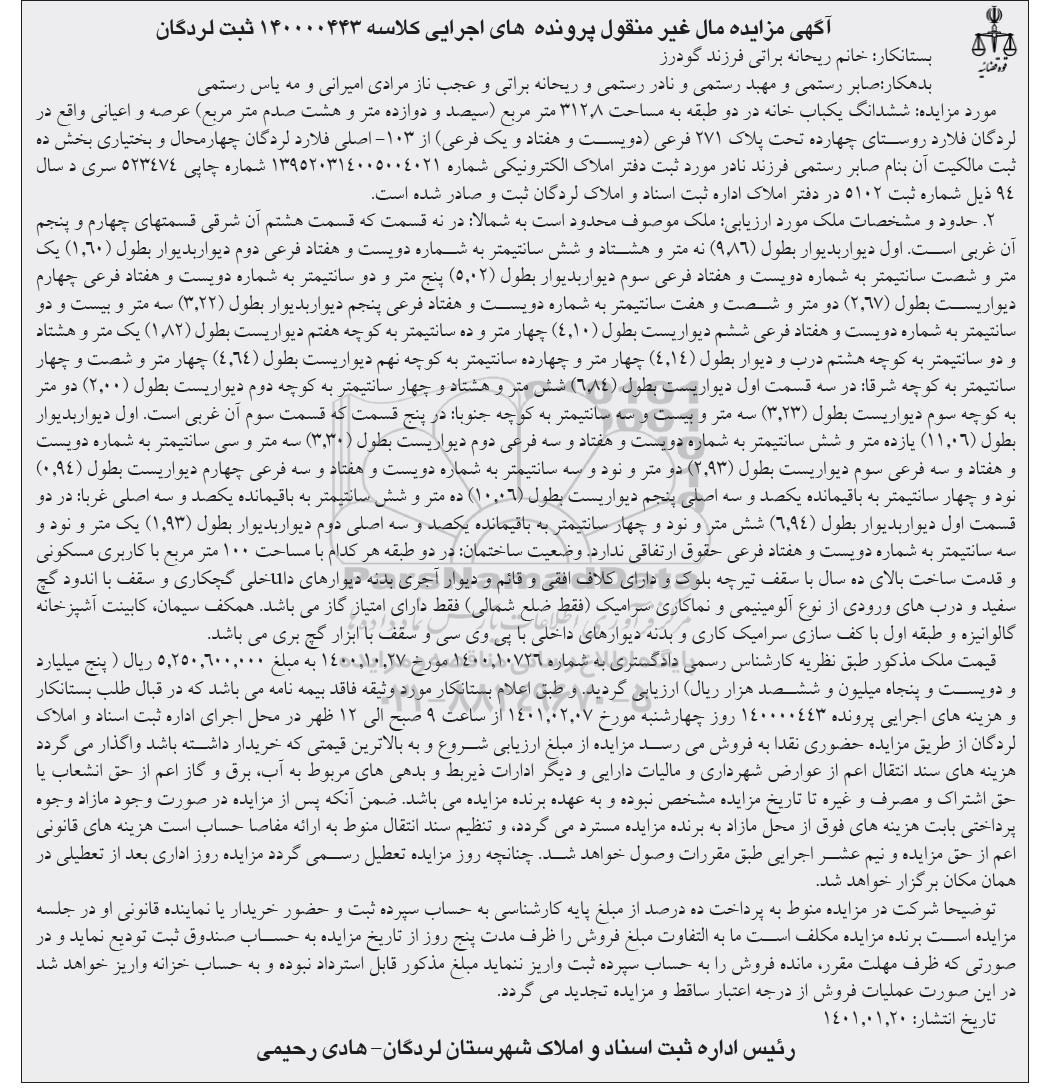 آگهی مزایده مال غیر منقول پرونده های اجرایی کلاسه ۱۴۰۰۰۰۴۴۳ ثبت لردگان
قوه قضائیه
بستانکار: خانم ریحانه براتی فرزند گودرز
بدهکار:صابر رستمی و مهبد رستمی و نادر رستمی و ریحانه براتی و عجب ناز مرادی امیرانی و مه یاس رستمی
مورد مزایده: ششدانگ یکباب خانه در دو طبقه به مساحت ۳۱۲,۸ متر مربع (سیصد و دوازده متر و هشت صدم متر مربع) عرصه و اعیانی واقع در
لردگان فلارد روستای چهارده تحت پلاک ۲۷۱ فرعی (دویست و هفتاد و یک فرعی) از ۱۰۳- اصلی فلارد لردگان چهارمحال و بختیاری بخش ده
ثبت مالکیت آن بنام صابر رستمی فرزند نادر مورد ثبت دفتر املاک الکترونیکی شماره ۱۳۹۵۲۰۳۱۴۰۰۵۰۰۴۰۲۱ شماره چاپی ۵۲۳۴۷۴ سری د سال
۹۴ ذیل شماره ثبت ۵۱۰۲ در دفتر املاک اداره ثبت اسناد و املاک لردگان ثبت و صادر شده است.
۲. حدود و مشخصات ملک مورد ارزیابی: ملک موصوف محدود است به شمالا: در نه قسمت که قسمت هشتم آن شرقی قسمتهای چهارم و پنجم
آن غربی است. اول دیواربدیوار بطول (۹,۸۶) نه متر و هشتاد و شش سانتیمتر به شماره دویست و هفتاد فرعی دوم دیواربدیوار بطول (۱,۶۰) یک
متر و شصت سانتیمتر به شماره دویست و هفتاد فرعی سوم دیواربدیوار بطول (۵,۰۲) پنج متر و دو سانتیمتر به شماره دویست و هفتاد فرعی چهارم
دیواریست بطول (۲,۶۷) دو متر و شصت و هفت سانتیمتر به شماره دویست و هفتاد فرعی پنجم دیواربدیوار بطول (۳,۲۲) سه متر و بیست و دو
سانتیمتر به شماره دویست و هفتاد فرعی ششم دیواریست بطول (۴,۱۰) چهار متر و ده سانتیمتر به کوچه هفتم دیواریست بطول (۱,۸۲) یک متر و هشتاد
و دو سانتیمتر به کوچه هشتم درب و دیوار بطول (۴,۱۴) چهار متر و چهارده سانتیمتر به کوچه نهم دیواریست بطول (۴,۶۴) چهار متر و شصت و چهار
سانتیمتر به کوچه شرقا: در سه قسمت اول دیواریست بطول (۶,۸۴) شش متر و هشتاد و چهار سانتیمتر به کوچه دوم دیواریست بطول (۲,۰۰) دو متر
به کوچه سوم دیواریست بطول (۳,۲۳) سه متر و بیست و سه سانتیمتر به کوچه جنوبا: در پنج قسمت که قسمت سوم آن غربی است. اول دیواربدیوار
بطول (۱۱,۰۶) یازده متر و شش سانتیمتر به شماره دویست و هفتاد و سه فرعی دوم دیواریست بطول (۳,۳۰) سه متر و سی سانتیمتر به شماره دویست
و هفتاد و سه فرعی سوم دیواریست بطول (۲,۹۳) دو متر و نود و سه سانتیمتر به شماره دویست و هفتاد و سه فرعی چهارم دیواریست بطول (۰,۹۴)
نود و چهار سانتیمتر به باقیمانده یکصد و سه اصلی پنجم دیواریست بطول (۱۰,۰۶) ده متر و شش سانتیمتر به باقیمانده یکصد و سه اصلی غربا: در دو
قسمت اول دیواربدیوار بطول (۶,۹۴) شش متر و نود و چهار سانتیمتر به باقیمانده یکصد و سه اصلی دوم دیواربدیوار بطول (۱,۹۳) یک متر و نود و
سه سانتیمتر به شماره دویست و هفتاد فرعی حقوق ارتفاقی ندارد. وضعیت ساختمان: در دو طبقه هر کدام با مساحت ۱۰۰ متر مربع با کاربری مسکونی
و قدمت ساخت بالای ده سال با سقف تیرچه بلوک و دارای کلاف افقی و قائم و دیوار آجری بدنه دیوارهای داuخلی گچکاری و سقف با اندود گچ
سفید و درب های ورودی از نوع آلومینیمی و نماکاری سرامیک (فقط ضلع شمالی) فقط دارای امتیاز گاز می باشد. همکف سیمان، کابینت آشپزخانه
گالوانیزه و طبقه اول با کف سازی سرامیک کاری و بدنه دیوارهای داخلی با پی وی سی و سقف با ابزار گچ بری می باشد.
قیمت ملک مذکور طبق نظریه کارشناس رسمی دادگستری به شماره ۱۴۰۰,۱۰۷۲۶ مورخ ۱۴۰۰,۱۰,۲۷ به مبلغ ۵,۲۵۰,۶۰۰,۰۰۰ ریال ( پنج میلیارد
و دویست و پنجاه میلیون و ششصد هزار ریال) ارزیابی گردید. و طبق اعلام بستانکار مورد وثیقه فاقد بیمه نامه می باشد که در قبال طلب بستانکار
و هزینه های اجرایی پرونده ۱۴۰۰۰۰۴۴۳ روز چهارشنبه مورخ ۱۴۰۱,۰۲,۰۷ از ساعت ۹ صبح الی ۱۲ ظهر در محل اجرای اداره ثبت اسناد و املاک
لردگان از طریق مزایده حضوری نقدا به فروش می رسد مزایده از مبلغ ارزیابی شروع و به بالاترین قیمتی که خریدار داشته باشد واگذار می گردد
هزینه های سند انتقال اعم از عوارض شهرداری و مالیات دارایی و دیگر ادارات ذیربط و بدهی های مربوط به آب، برق و گاز اعم از حق انشعاب یا
حق اشتراک و مصرف و غیره تا تاریخ مزایده مشخص نبوده و به عهده برنده مزایده می باشد. ضمن آنکه پس از مزایده در صورت وجود مازاد وجوه
پرداختی بابت هزینه های فوق از محل مازاد به برنده مزایده مسترد می گردد، و تنظیم سند انتقال منوط به ارائه مفاصا حساب است هزینه های قانونی
اعم از حق مزایده و نیم عشر اجرایی طبق مقررات وصول خواهد شد. چنانچه روز مزایده تعطیل رسمی گردد مزایده روز اداری بعد از تعطیلی در
همان مکان برگزار خواهد شد.
توضیحا شرکت در مزایده منوط به پرداخت ده درصد از مبلغ پایه کارشناسی به حساب سپرده ثبت و حضور خریدار یا نماینده قانونی او در جلسه
مزایده است برنده مزایده مکلف است ما به التفاوت مبلغ فروش را ظرف مدت پنج روز از تاریخ مزایده به حساب صندوق ثبت تودیع نماید و در
صورتی که ظرف مهلت مقرر، مانده فروش را به حساب سپرده ثبت واریز ننماید مبلغ مذکور قابل استرداد نبوده و به حساب خزانه واریز خواهد شد
در این صورت عملیات فروش از درجه اعتبار ساقط و مزایده تجدید می گردد.
تاریخ انتشار: ۱۴۰۱,۰۱,۲۰
رئیس اداره ثبت اسناد و املاک شهرستان لردگان- هادی رحیمی
ParsNamadData
۰۲۱-۸۸۳۴۹۶۷۰-۵